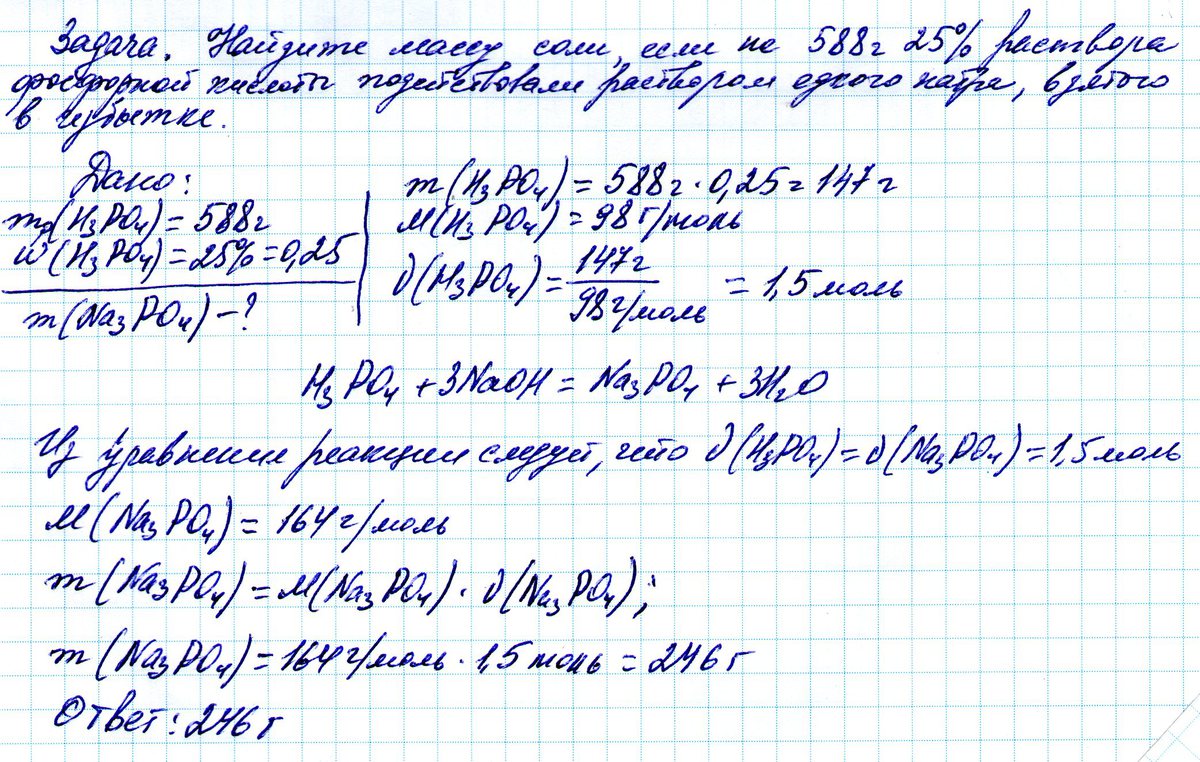 Задача. Найдите массу соли, если на 588г 25% раствора
фосфорной кислоты подействовали раствором едкого натра, взятого
в избытке.
Дано:
mр(H₃PO₄) = 588г
ω(H₃PO₄) = 25% = 0,25
m(Na₃PO₄) - ?
m(H₃PO₄) = 588г · 0,25 = 147г
M(H₃PO₄) = 98 г/моль
ν(H₃PO₄) = 147г / 98г/моль = 1,5 моль
H₃PO₄ + 3NaOH = Na₃PO₄ + 3H₂O
Из уравнения реакции следует, что ν(H₃PO₄) = ν(Na₃PO₄) = 1,5 моль
M(Na₃PO₄) = 164 г/моль
m(Na₃PO₄) = M(Na₃PO₄) · ν(Na₃PO₄);
m(Na₃PO₄) = 164 г/моль · 1,5 моль = 246 г
Ответ: 246 г